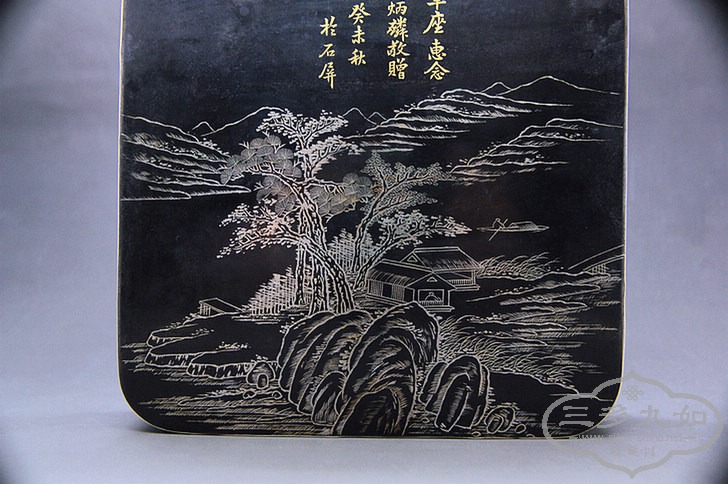 座惠念
炳麟敬贈
癸未秋
於石屏
三多九如